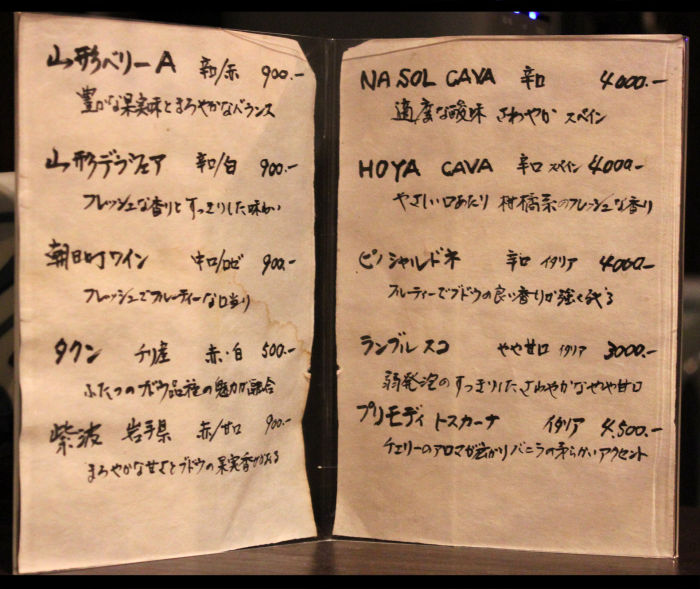 山形ベリーA 辛口/赤 900.-
豊かな果実味とまろやかなバランス
山形デラウェア 辛口/白 900.-
フレッシュな香りとすっきりした味わい
朝日町ワイン 中口/ロゼ 900.-
フレッシュでフルーティーな口当り
タクン チリ産 赤・白 500.-
ふたつのブドウ品種の魅力が融合
紫波 岩手県 赤/甘口 900.-
まろやかな甘さとブドウの果実香がかおる
NA SOL CAVA 辛口 4000.-
適度な酸味 さわやか スペイン
HOYA CAVA 辛口 スペイン 4000.-
やさしい口あたり 柑橘系のフレッシュな香り
ピノシャルドネ 辛口 イタリア 4000.-
フルーティーでブドウの良い香りが強く残る
ランブルスコ やや甘口 イタリア 3000.-
弱発泡のすっきりした、さわやかなやや甘口
プリモディトスカーナ イタリア 4,500.-
チェリーのアロマが広がりバニラの柔らかいアクセント